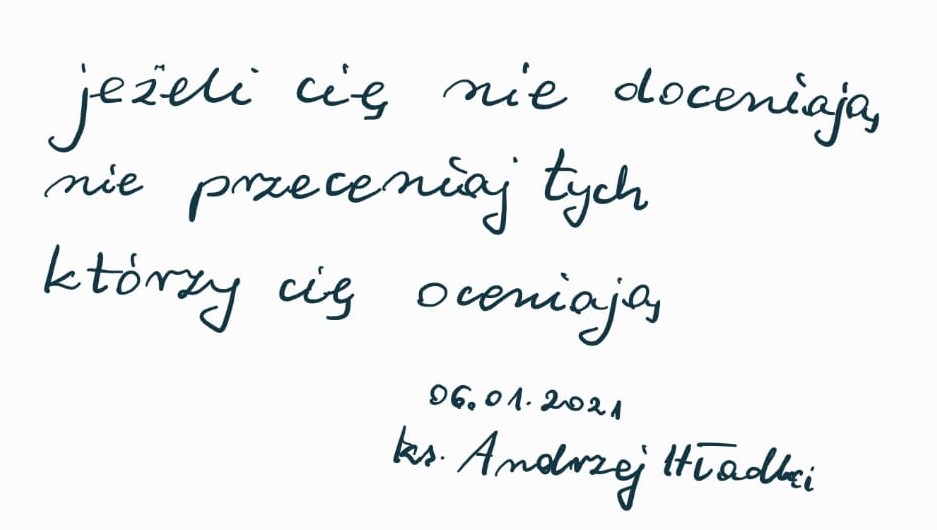 jeżeli cię nie doceniają
nie przeceniaj tych
którzy cię oceniają
06.01.2021
ks. Andrzej